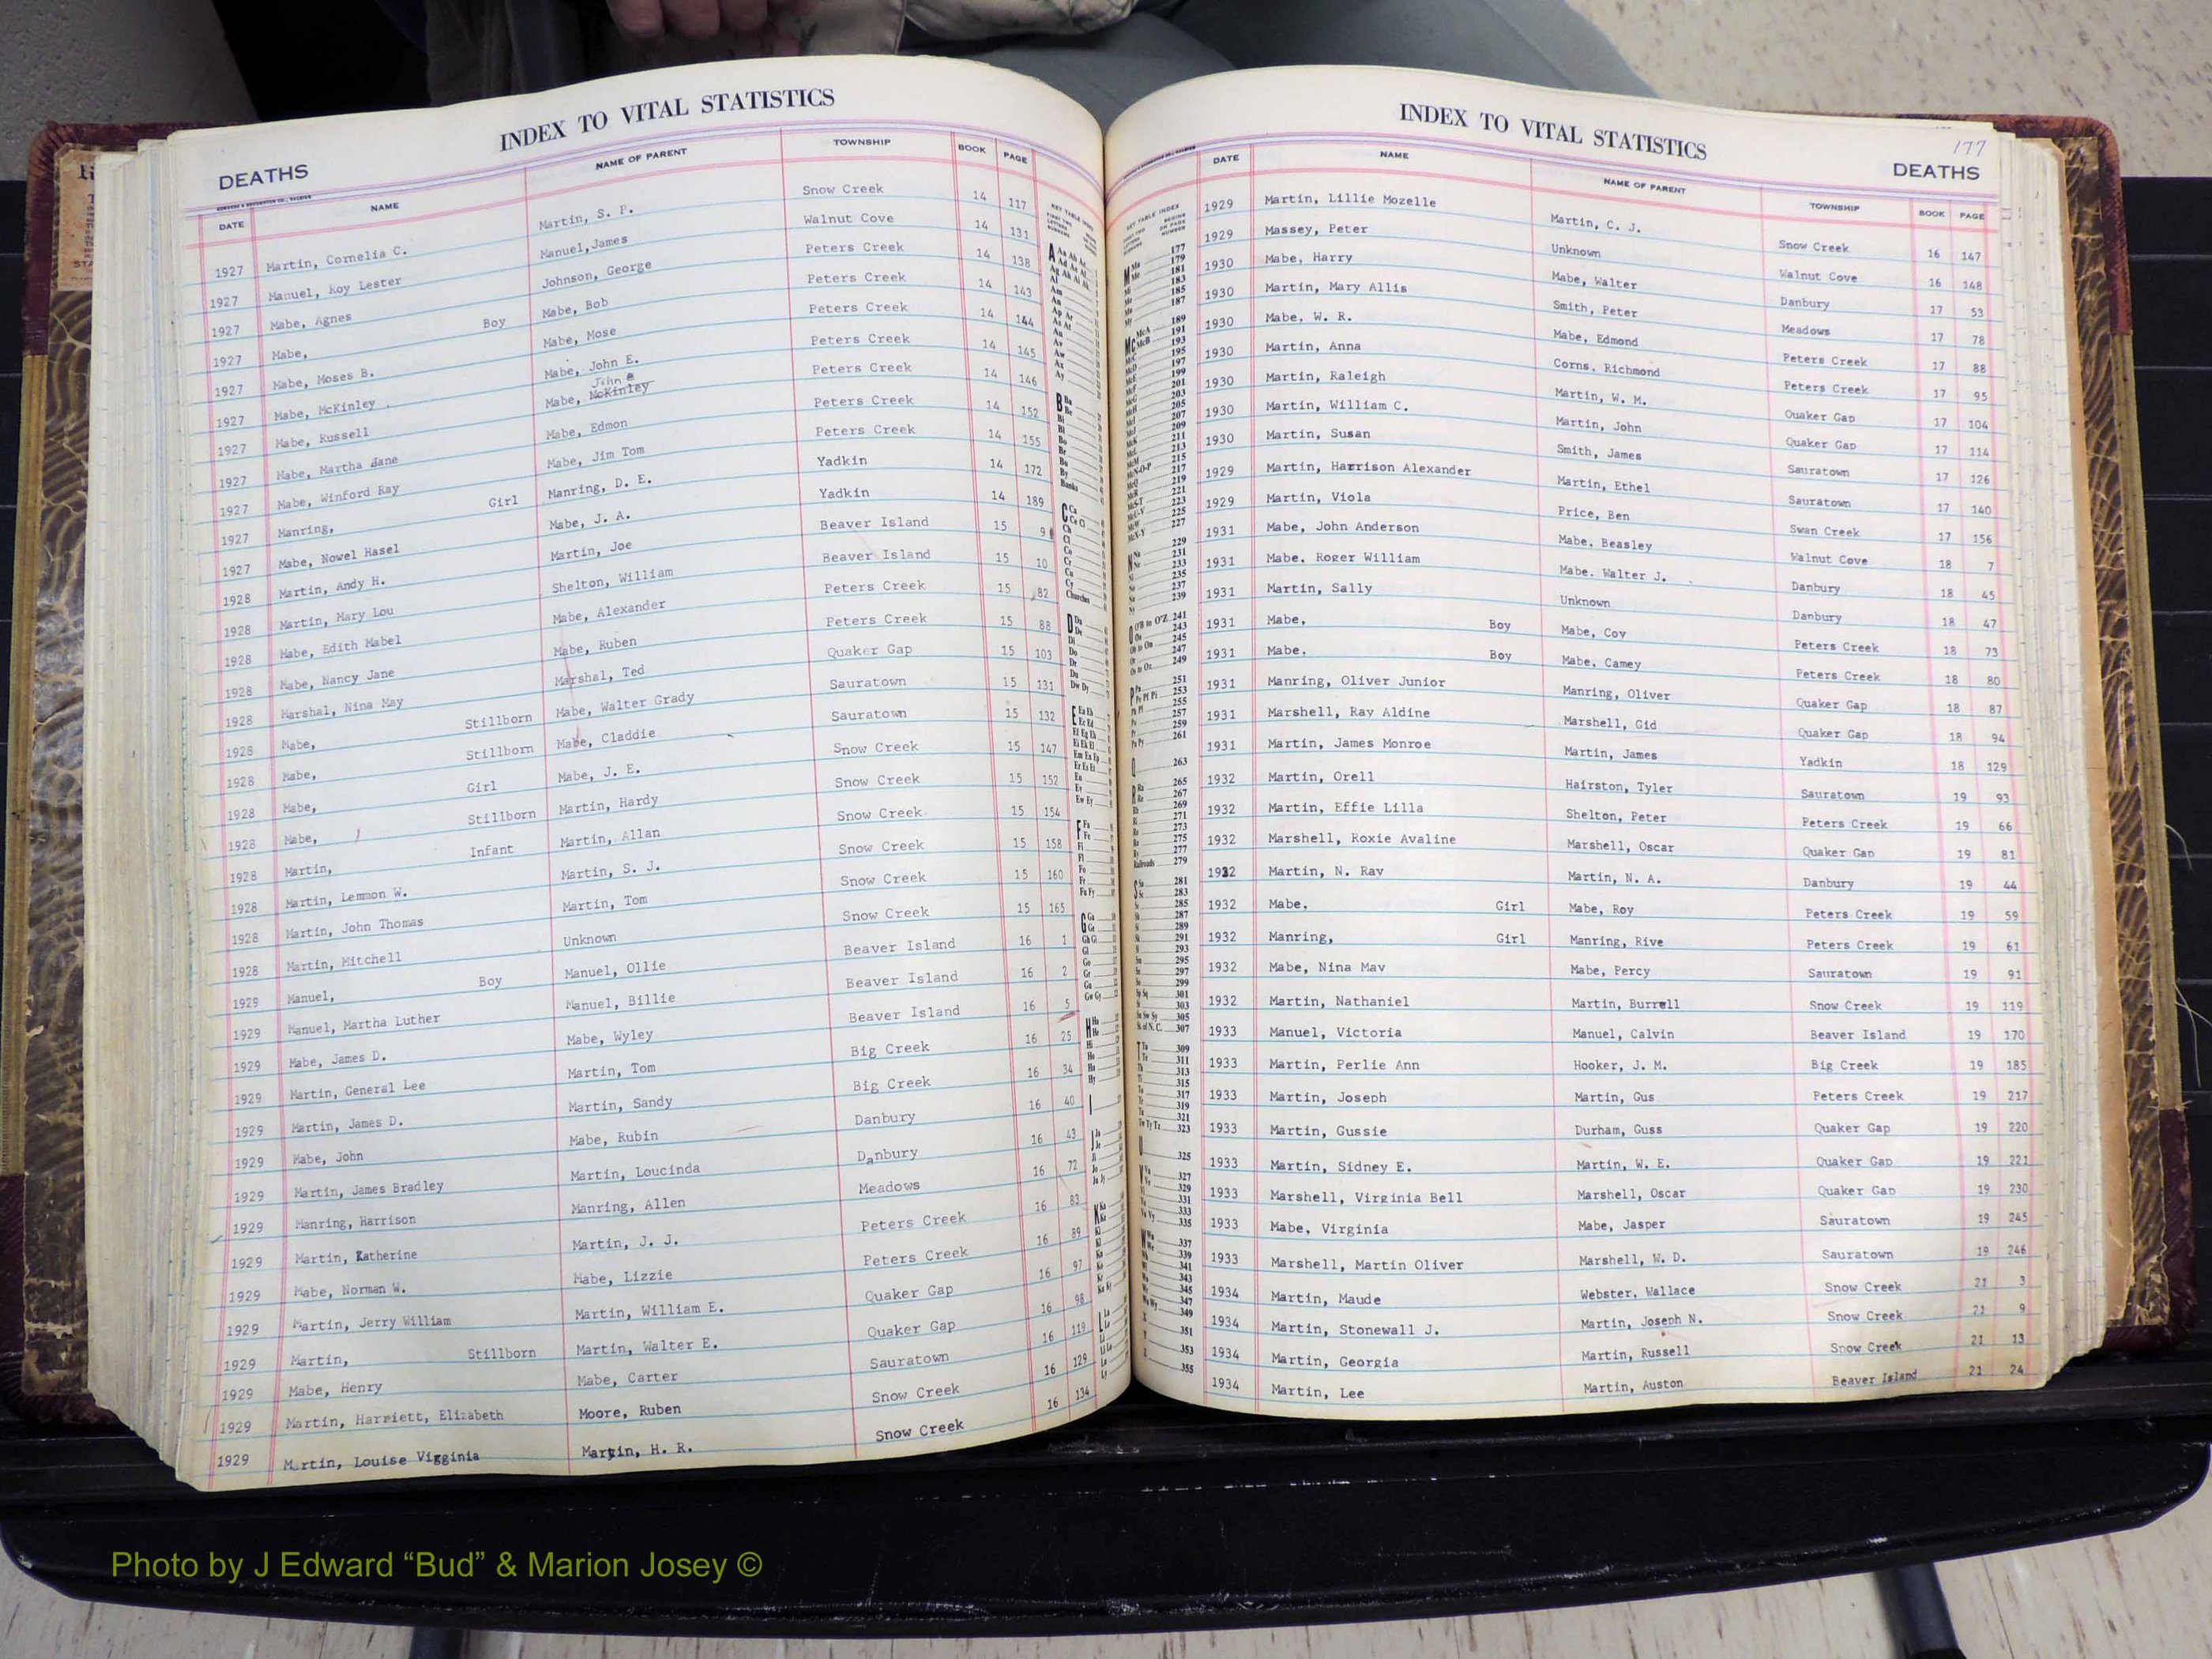 INDEX TO VITAL STATISTICS
DEATHS
DATE NAME NAME OF PARENT TOWNSHIP BOOK PAGE
1927 Martin, Cornelia C. Martin, S. P. Snow Creek 14 117
1927 Manuel, Roy Lester Manuel,James Walnut Cove 14 131
1927 Mabe, Agnes Johnson, George Peters Creek 14 138
1927 Mabe, Boy Mabe, Bob Peters Creek 14 143
1927 Mabe, Moses B. Mabe, Mose Peters Creek 14 144
1927 Mabe, McKinley Mabe, John E. Peters Creek 14 145
John e
1927 Mabe, Russell Mabe, McKinley Peters Creek 14 146
1927 Mabe, Martha Jane Mabe, Edmon Peters Creek 14 152
1927 Mabe, Winford Ray Mabe, Jim Tom Peters Creek 14 155
1927 Manring, Girl Manring, D. E. Yadkin 14 172
1927 Mabe, Nowel Hasel Mabe, J. A. Yadkin 14 189
1928 Martin, Andy H. Martin, Joe Beaver Island 15 9
1928 Martin, Mary Lou Shelton, William Beaver Island 15 10
1928 Mabe, Edith Mabel Mabe, Alexander Peters Creek 15 82
1928 Mabe, Nancy Jane Mabe, Ruben Peters Creek 15 88
1928 Marshal, Nina May Marshal, Ted Quaker Gap 15 103
1928 Mabe, Stillborn Mabe, Walter Grady Sauratown 15 131
1928 Mabe, Stillborn Mabe, Claddie Sauratown 15 132
1928 Mabe, Girl Mabe, J. E. Snow Creek 15 147
1928 Mabe, Stillborn Martin, Hardy Snow Creek 15 152
1928 Martin, Infant Martin, Allan Snow Creek 15 154
1928 Martin, Lemmon W. Martin, S. J. Snow Creek 15 158
1928 Martin, John Thomas Martin, Tom Snow Creek 15 160
1928 Martin, Mitchell Unknown Snow Creek 15 165
1929 Manuel, Boy Manuel, Ollie Beaver Island 16 1
1929 Manuel, Martha Luther Manuel, Billie Beaver Island 16 2
1929 Mabe, James D. Mabe, Wyley Beaver Island 16 5
1929 Martin, General Lee Martin, Tom Big Creek 16 25
1929 Martin, James D. Martin, Sandy Big Creek 16 34
1929 Mabe, John Mabe, Rubin Danbury 16 40
1929 Martin, James Bradley Martin, Loucinda Danbury 16 43
1929 Manring, Harrison Manring, Allen Meadows 16 72
1929 Martin, Katherine Martin, J. J. Peters Creek 16 83
1929 Mabe, Norman W. Mabe, Lizzie Peters Creek 16 89
1929 Martin, Jerry William Martin, William E. Quaker Gap 16 97
1929 Martin, Stillborn Martin, Walter E. Quaker Gap 16 98
1929 Mabe, Henry Mabe, Carter Sauratown 16 119
1929 Martin, Harriett, Elizabeth Moore, Ruben Snow Creek 16 129
1929 Martin, Louise Vigginia Martin, H. R. Snow Creek 16 134
INDEX TO VITAL STATISTICS
177
DEATHS
DATE NAME NAME OF PARENT TOWNSHIP BOOK PAGE
1929 Martin, Lillie Mozelle Martin, C. J. Snow Creek 16 147
1929 Massey, Peter Unknown Walnut Cove 16 148
1930 Mabe, Harry Mabe, Walter Danbury 17 53
1930 Martin, Mary Allis Smith, Peter Meadows 17 78
1930 Mabe, W. R. Mabe, Edmond Peters Creek 17 88
1930 Martin, Anna Corns, Richmond Peters Creek 17 95
1930 Martin, Raleigh Martin, W. M. Quaker Gap 17 104
1930 Martin, William C. Martin, John Quaker Gap 17 114
1930 Martin, Susan Smith, James Sauratown 17 126
1929 Martin, Harrison Alexander Martin, Ethel Sauratown 17 140
1929 Martin, Viola Price, Ben Swan Creek 17 156
1931 Mabe, John Anderson Mabe, Beasley Walnut Cove 18 7
1931 Mabe, Roger William Mabe. Walter J. Danbury 18 45
1931 Martin, Sally Unknown Danbury 18 47
1931 Mabe, Boy Mabe, Coy Peters Creek 18 73
1931 Mabe, Boy Mabe, Camey Peters Creek 18 80
1931 Manring, Oliver Junior Manring, Oliver Quaker Gap 18 87
1931 Marshell, Ray Aldine Marshell, Gid Quaker Gap 18 94
1931 Martin, James Monroe Martin, James Yadkin 18 129
1932 Martin, Orell Hairston, Tyler Sauratown 19 93
1932 Martin, Effie Lilla Shelton, Peter Peters Creek 19 66
1932 Marshell, Roxie Avaline Marshell, Oscar Quaker Gap 19 81
1932 Martin, N. Ray Martin, N. A. Danbury 19 44
1932 Mabe, Girl Mabe, Roy Peters Creek 19 59
1932 Manring, Girl Manring, Rive Peters Creek 19 61
1932 Mabe, Nina May Mabe, Percy Sauratown 19 91
1932 Martin, Nathaniel Martin, Burrell Snow Creek 19 119
1933 Manuel, Victoria Manuel, Calvin Beaver Island 19 170
1933 Martin, Perlie Ann Hooker, J. M. Big Creek 19 185
1933 Martin, Joseph Martin, Gus Peters Creek 19 217
1933 Martin, Gussie Durham, Guss Quaker Gap 19 220
1933 Martin, Sidney E. Martin, W. E. Quaker Gap 19 221
1933 Marshell, Virginia Bell Marshell, Oscar Quaker Gap 19 230
1933 Mabe, Virginia Mabe, Jasper Sauratown 19 245
1933 Marshell, Martin Oliver Marshell, W. D. Sauratown 19 246
1934 Martin, Maude Webster, Wallace Snow Creek 21 3
1934 Martin, Stonewall J. Martin, Joseph N. Snow Creek 21 9
1934 Martin, Georgia Martin, Russell Snow Creek 21 13
1934 Martin, Lee Martin, Auston Beaver Island 21 24
Photo by J Edward “Bud” & Marion Josey ©